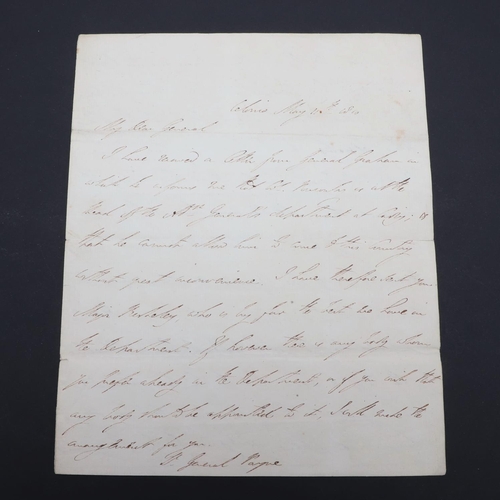 Celorico May 2d 1810
My Dear General
I have received a letter from General Graham in
which he informs me that Col. is at the
Head of the Adjt. General's Department at Cadiz; &
that he cannot allow him to come to this country
without great inconvenience. I have therefore sent you
Major Berkeley who is by far the best we have in
the Department. If however there is any body whom
you prefer already in the Department, or if you wish that
any body should be appointed to it, I will make the
arrangement for you.
Lt. General Payne